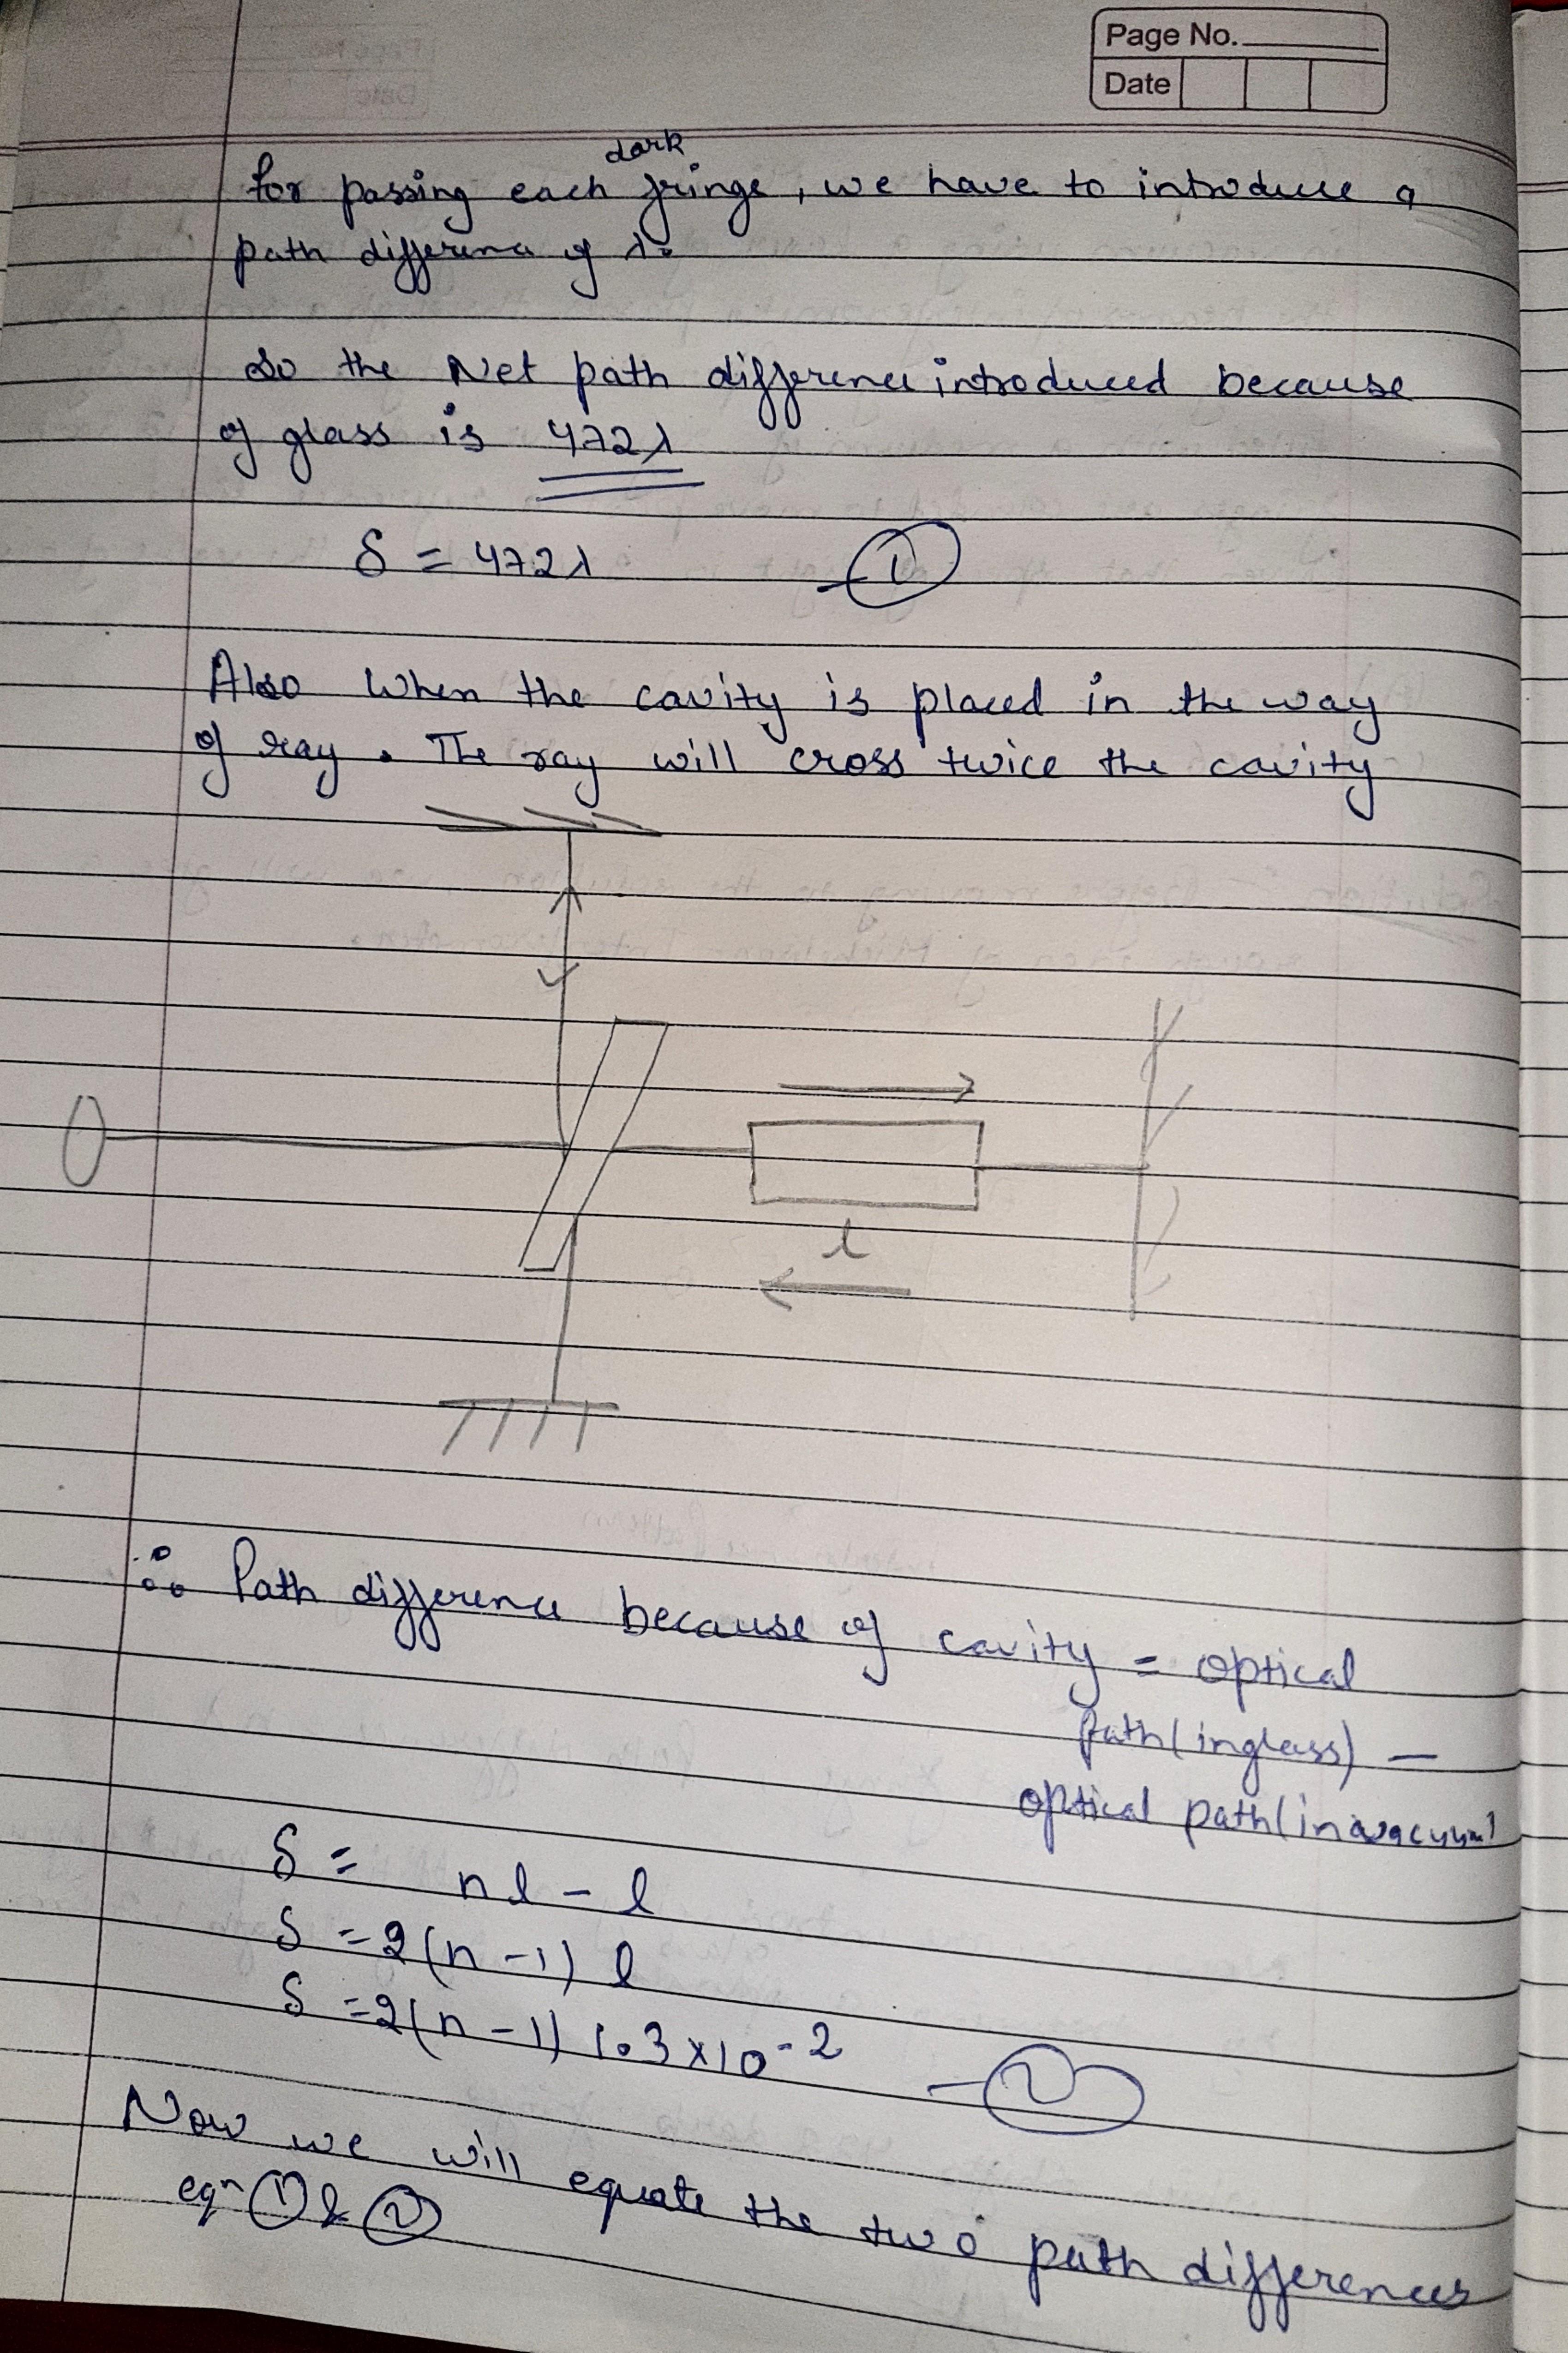 Page No.
Date
dark
for passing each fringe, we have to introduce a
path differenc of λ.
So the Net path difference introduced because
of glass is 472λ
δ = 472λ —①
Also When the cavity is placed in the way
of ray. The ray will cross twice the cavity
l
∴ Path difference because of cavity = optical
path (in glass) —
optical path (in vacuum)
δ = nl - l
δ = 2(n-1) l
δ = 2(n-1) 1.3×10⁻² —②
Now we will equate the two path differences
eqⁿ ① & ②